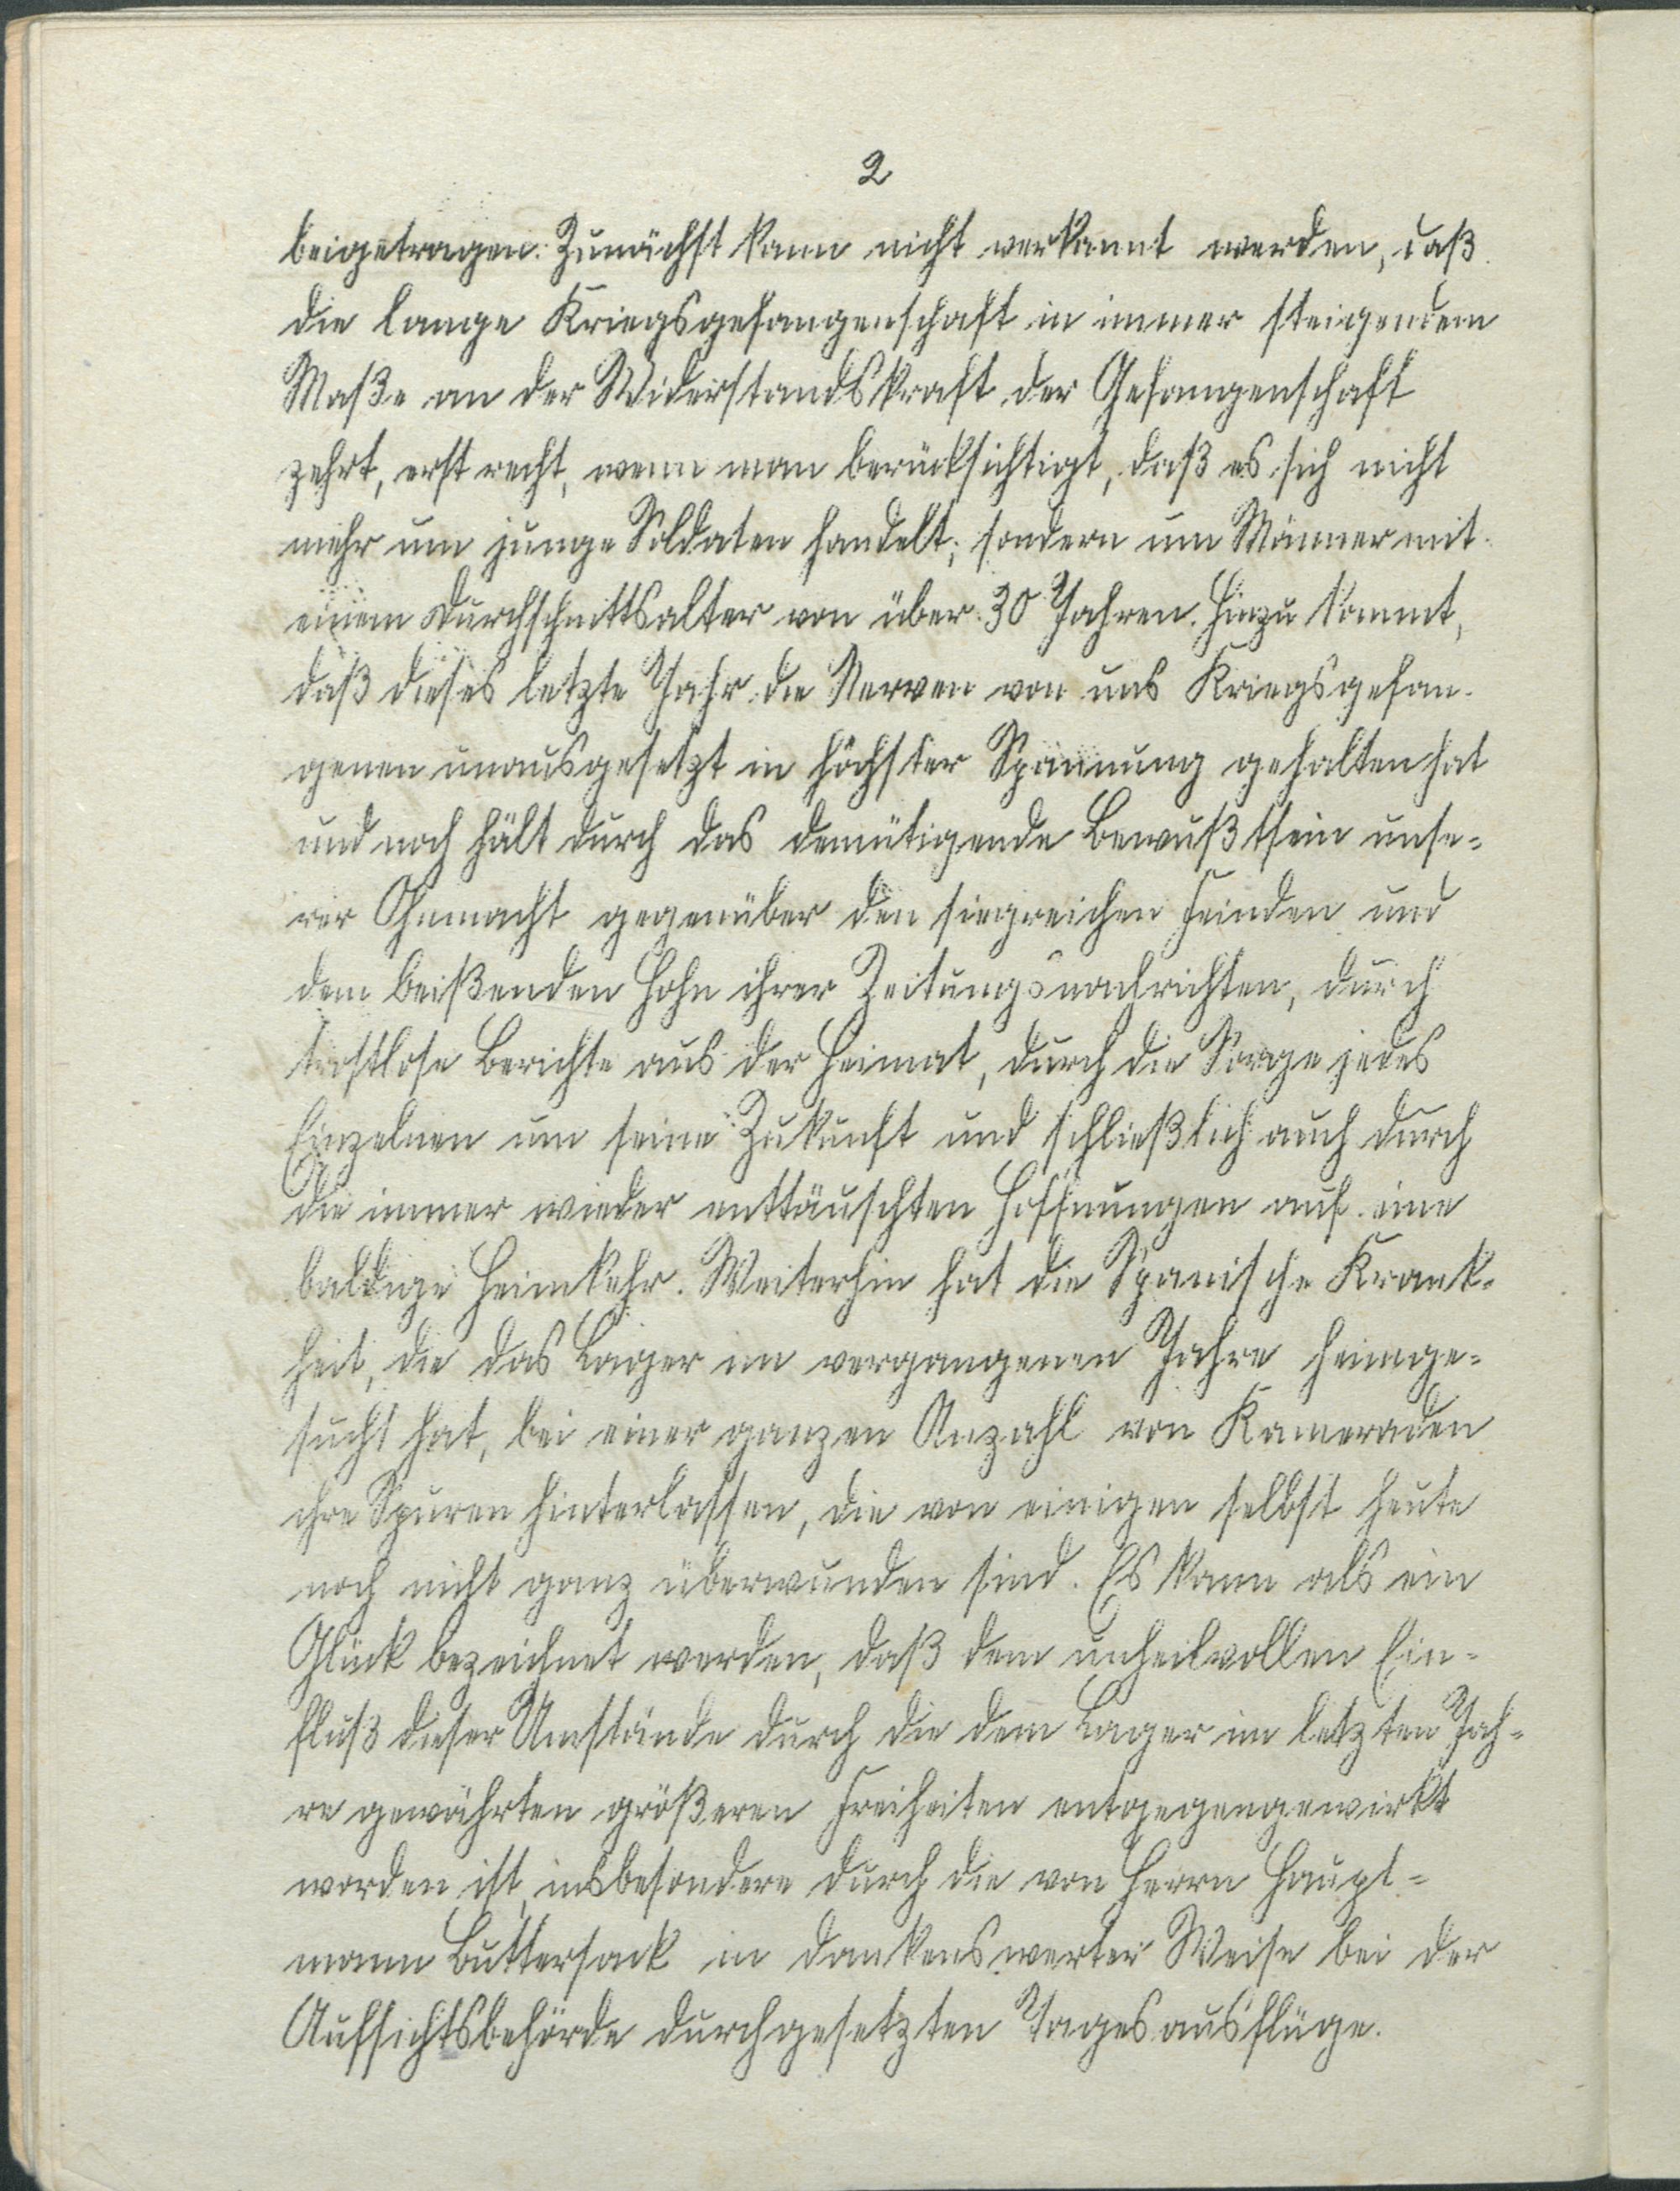 2
beigetragen. Zunächst kann nicht verkannt werden, daß
die lange Kriegsgefangenschaft in immer steigendem
Maße an der Widerstandskraft der Gefangenschaft
zehrt, erst recht, wenn man berücksichtigt, daß es sich nicht
mehr um junge Soldaten handelt, sondern um Männer mit
einem Durchschnittsalter von über 30 Jahren. Hinzu kommt,
daß dieses letzte Jahr die Nerven von uns Kriegsgefan-
genen unausgesetzt in höchster Spannung gehalten hat
und noch hält durch das demütigende Bewußtsein unse-
rer Ohnmacht gegenüber den siegreichen Feinden und
dem beißenden Hohn ihrer Zeitungsnachrichten, durch
trostlose Berichte aus der Heimat, durch die Sorge jedes
Einzelnen um seine Zukunft und schließlich auch durch
die immer wieder enttäuschten Hoffnungen auf eine
baldige Heimkehr. Weiterhin hat die Spanische Krank-
heit, die das Lager im vergangenen Jahre heimge-
sucht hat, bei einer ganzen Anzahl von Kameraden
ihre Spuren hinterlassen, die von einigen selbst heute
noch nicht ganz überwunden sind. Es kann als ein
Glück bezeichnet werden, daß dem unheilvollen Ein-
fluß dieser Umstände durch die dem Lager im letzten Jah-
re gewährten größeren Freiheiten entgegengewirkt
worden ist, insbesondere durch die von Herrn Haupt-
mann Buttersack in dankenswerter Weise bei der
Aufsichtsbehörde durchgesetzten Tagesausflüge.